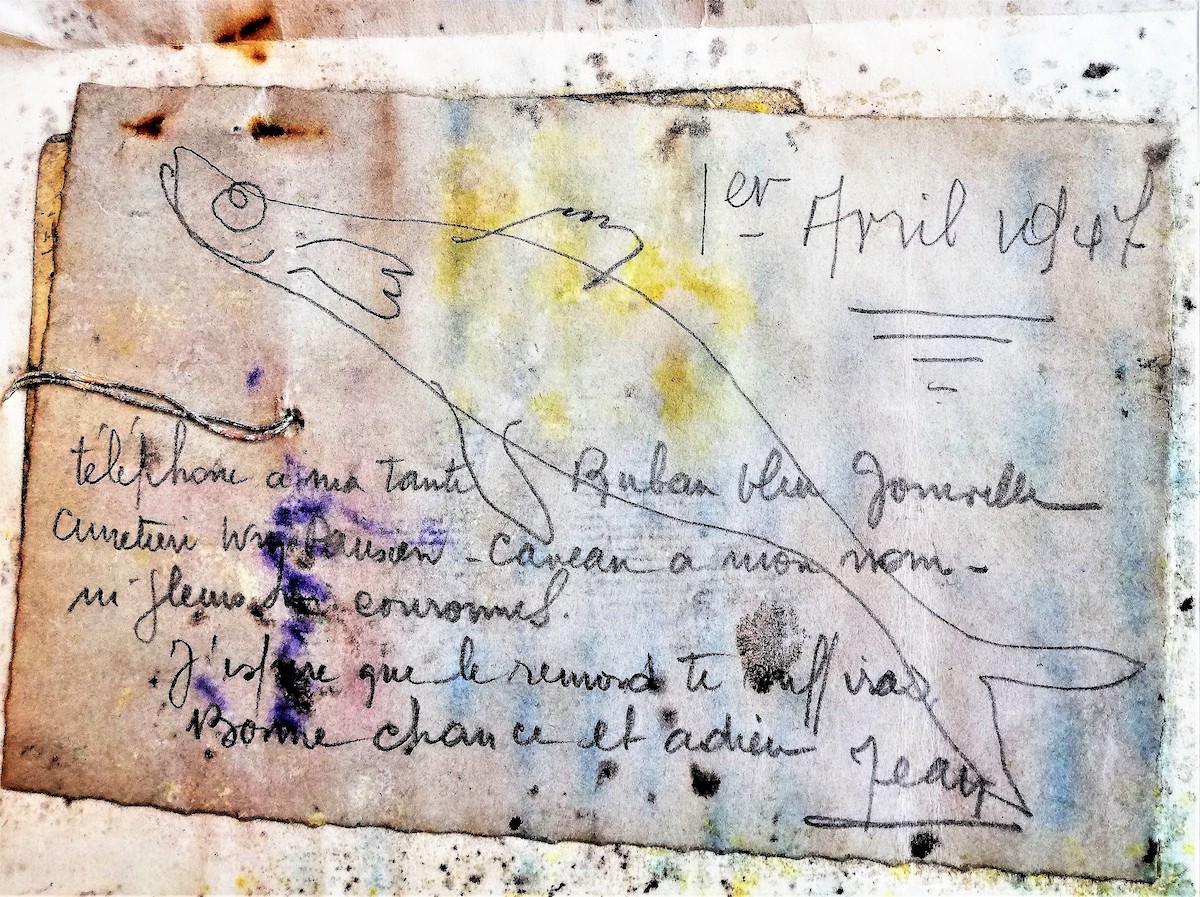 1er Avril 1947
téléphone a ma tante Ruban bleu Joinville
Cimetieri parisien - caveau a mon nom -
ni fleurs ni couronnes.
J'espere que le remord te suffiras
Bonne chance et adieu
Jean